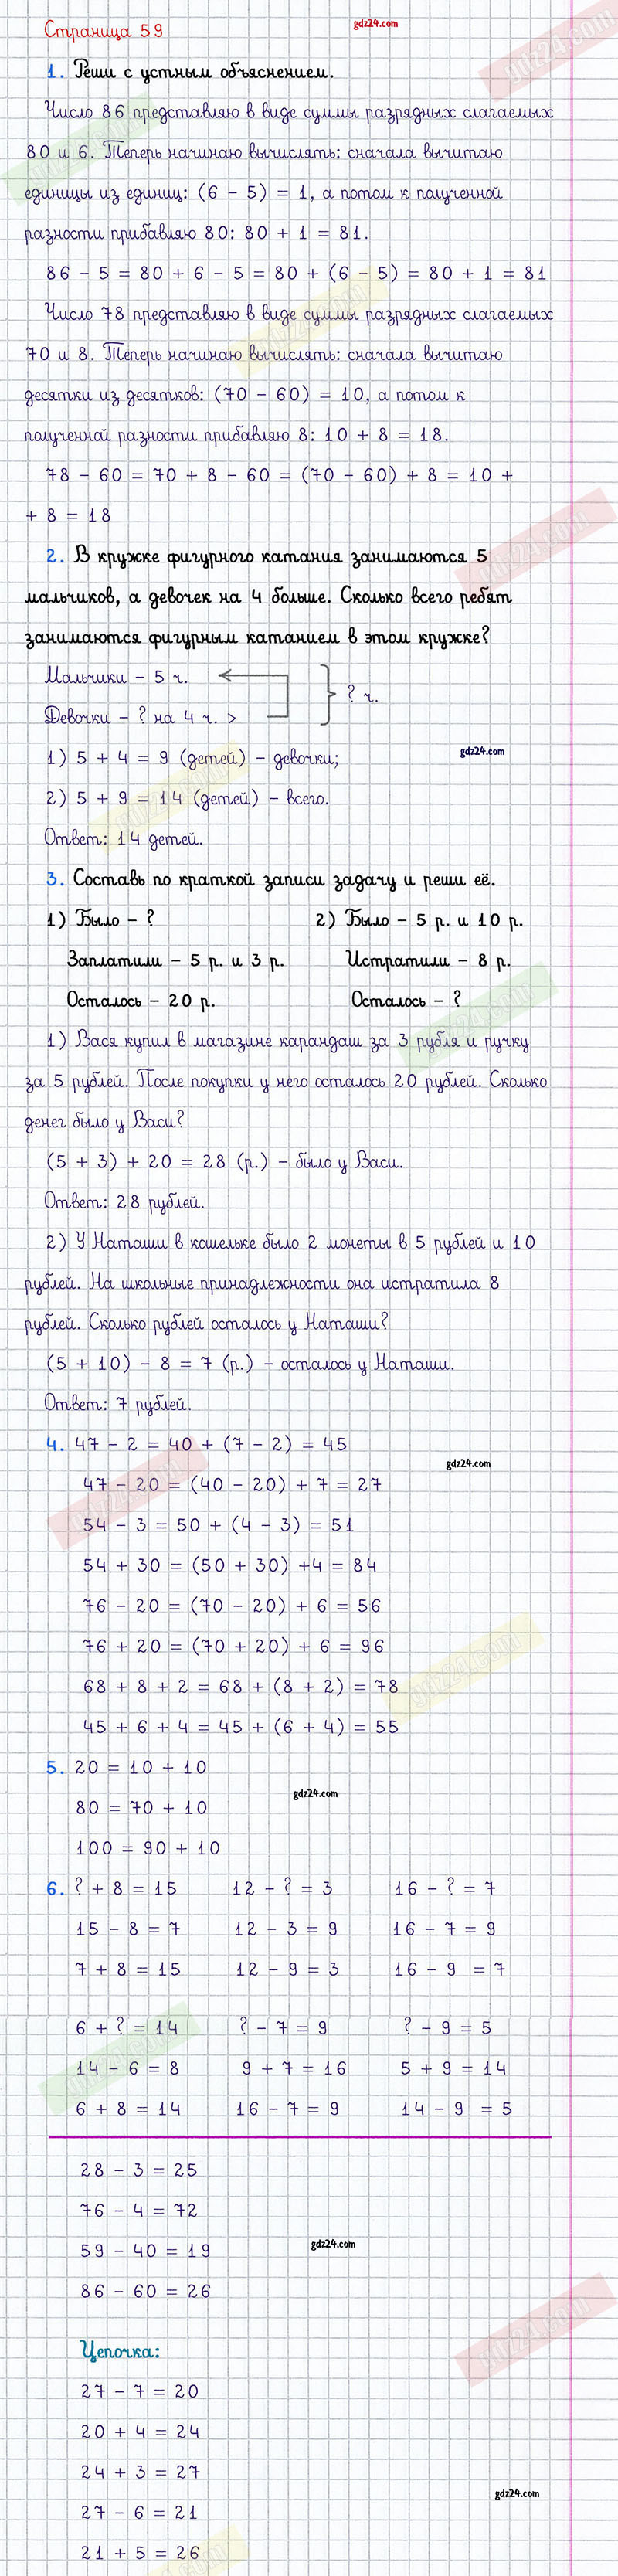 gdz24.com
Страница 59
1. Реши с устным объяснением.
Число 86 представляю в виде суммы разрядных слагаемых
80 и 6. Теперь начинаю вычислять: сначала вычитаю
единицы из единиц: (6 - 5) = 1, а потом к полученной
разности прибавляю 80: 80 + 1 = 81.
86 - 5 = 80 + 6 - 5 = 80 + (6 - 5) = 80 + 1 = 81
Число 78 представляю в виде суммы разрядных слагаемых
70 и 8. Теперь начинаю вычислять: сначала вычитаю
десятки из десятков: (70 - 60) = 10, а потом к
полученной разности прибавляю 8: 10 + 8 = 18.
78 - 60 = 70 + 8 - 60 = (70 - 60) + 8 = 10 +
+ 8 = 18
2. В кружке фигурного катания занимаются 5
мальчиков, а девочек на 4 больше. Сколько всего ребят
занимаются фигурным катанием в этом кружке?
Мальчики - 5 ч.
? ч.
Девочки - ? на 4 ч. >
1) 5 + 4 = 9 (детей) - девочки;
gdz24.com
2) 5 + 9 = 14 (детей) - всего.
Ответ: 14 детей.
3. Составь по краткой записи задачу и реши её.
1) Было - ? 2) Было - 5 р. и 10 р.
Заплатили - 5 р. и 3 р. Истратили - 8 р.
Осталось - 20 р. Осталось - ?
1) Вася купил в магазине карандаш за 3 рубля и ручку
за 5 рублей. После покупки у него осталось 20 рублей. Сколько
денег было у Васи?
(5 + 3) + 20 = 28 (р.) - было у Васи.
Ответ: 28 рублей.
2) У Наташи в кошельке было 2 монеты в 5 рублей и 10
рублей. На школьные принадлежности она истратила 8
рублей. Сколько рублей осталось у Наташи?
(5 + 10) - 8 = 7 (р.) - осталось у Наташи.
Ответ: 7 рублей.
4. 47 - 2 = 40 + (7 - 2) = 45
gdz24.com
47 - 20 = (40 - 20) + 7 = 27
54 - 3 = 50 + (4 - 3) = 51
54 + 30 = (50 + 30) +4 = 84
76 - 20 = (70 - 20) + 6 = 56
76 + 20 = (70 + 20) + 6 = 96
68 + 8 + 2 = 68 + (8 + 2) = 78
45 + 6 + 4 = 45 + (6 + 4) = 55
5. 20 = 10 + 10
gdz24.com
80 = 70 + 10
100 = 90 + 10
6. ? + 8 = 15 12 - ? = 3 16 - ? = 7
15 - 8 = 7 12 - 3 = 9 16 - 7 = 9
7 + 8 = 15 12 - 9 = 3 16 - 9 = 7
6 + ? = 14 ? - 7 = 9 ? - 9 = 5
14 - 6 = 8 9 + 7 = 16 5 + 9 = 14
6 + 8 = 14 16 - 7 = 9 14 - 9 = 5
28 - 3 = 25
76 - 4 = 72
59 - 40 = 19
gdz24.com
86 - 60 = 26
Цепочка:
27 - 7 = 20
20 + 4 = 24
24 + 3 = 27
gdz24.com
27 - 6 = 21
21 + 5 = 26